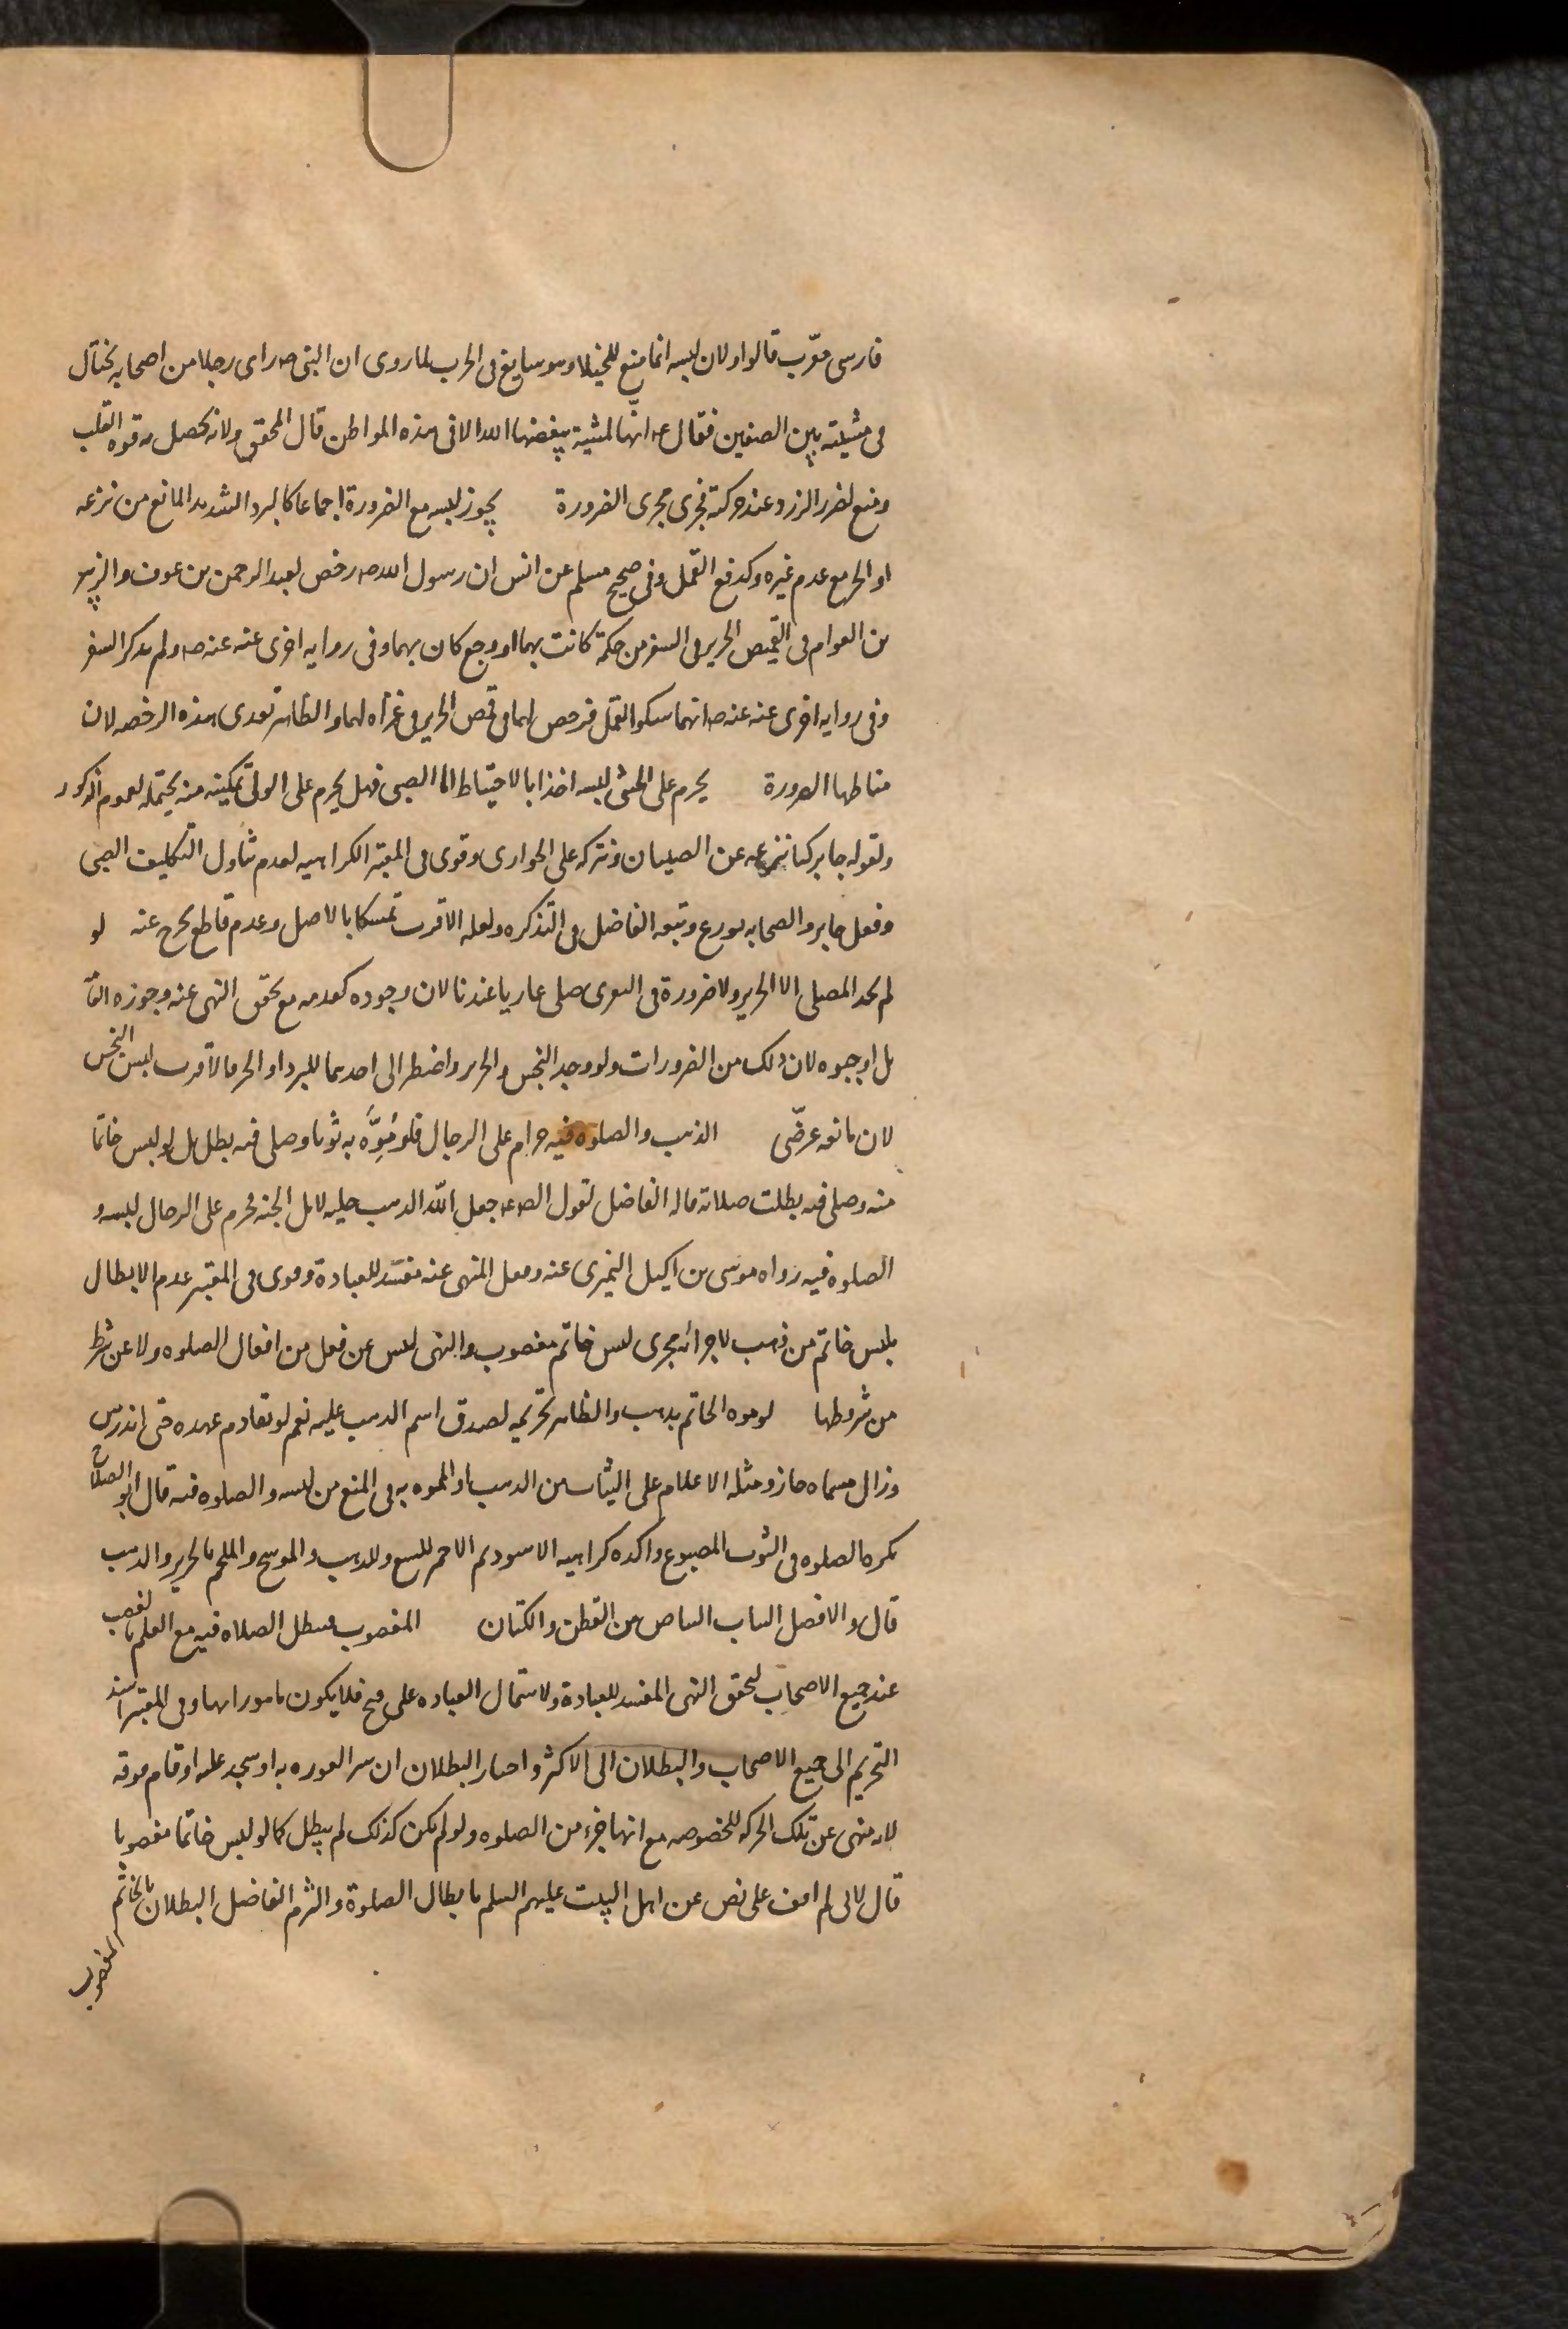 فارسى معرّب قالوا ولان لبسه انما منع للخيلا وهو سايغ فى الحرب لما روى ان النبى ص راى رجلا من اصحابه يختال
فى مشيته بين الصفين فقال ع انّها لمشية يبغضها الله الا فى هذه المواطن قال المحقق ولانه يحصل به قوه القلب
ومنع لضرر الزرد عند حركته فجرى مجرى الضرورة يجوز لبسه مع الضرورة اجماعا كالبرد الشديد المانع من نزعه
او الحر مع عدم غيره وكدفع القمل وفى صحيح مسلم عن انس ان رسول الله ص رخص لعبد الرحمن بن عوف والزبير
بن العوام فى القميص الحرير فى السفر من حكة كانت بهما او وجع كان بهما وفى روايه اخرى عنه عنه ص ولم يذكر السفر
وفى روايه اخرى عنه عنه ص انهما شكوا القمل فرخص لهما فى قمص الحرير فى غزاه لهما والظاهر تعدى هذه الرخصه لان
مناطها الضرورة يحرم على الخنثى لبسه اخذا بالاحتياط اما الصبى فهل يحرم على الولى تمكينه منه يحتمله لعموم الذكور
ولقوله جابر كنا ننزعه عن الصبيان ونتركه على الجوارى وقوى فى المعتبر الكراهيه لعدم تناول التكليف الصبى
وفعل جابر والصحابه تورع وتبعه الفاضل فى التذكره ولعله الاقرب تمسكا بالاصل وعدم قاطع يخرج عنه لو
لم يجد المصلى الا الحرير ولا ضرورة فى التعرى صلى عاريا عندنا لان وجوده كعدمه مع تحقق النهى عنه وجوزه العا
بل اوجبوه لان ذلك من الضرورات ولو وجد النجس والحرير واضطر الى احدهما للبرد او الحر فالاقرب لبس النجس
لان مانعه عرضّى الذهب والصلوه فيه حرام على الرجال فلو مُوِّهَ به ثوبا وصلى فيه بطل بل لو لبس خاتما
منه وصلى فيه بطلت صلاته قاله الفاضل لقول الص ع جعل الله الذهب حليه لاهل الجنه فحرم على الرجال لبسه و
الصلوه فيه رواه موسى بن اكيل النميرى عنه وفعل المنهى عنه مفسد للعبادة وقوى فى المعتبر عدم الابطال
بلبس خاتم من ذهب لاجرائه مجرى لبس خاتم مغصوب والنهى ليس عن فعل من افعال الصلوه ولا عن شرط
من شروطها لو موه الخاتم بذهب والظاهر تحريمه لصدق اسم الذهب عليه نعم لو تقادم عهده حتى اندرس
وزال مسماه جاز ومثله الاعلام على الثياب من الذهب او المموه به فى المنع من لبسه والصلوه فيه قال ابو الصلاح
يكره الصلوه فى الثوب المصبوغ واكده كراهيه الاسود ثم الاحمر المشبع والمذهب والموشح والملحم بالحرير والذهب
قال والافضل الثياب البياض من القطن والكتان المغصوب فتبطل الصلاه فيه مع العلم بالغصب
عند جميع الاصحاب لتحقق النهى المفسد للعبادة ولاشتمال العباده على قبح فلا يكون مامورا بها وفى المعتبر اسند
التحريم الى جميع الاصحاب والبطلان الى الاكثر واختار البطلان ان ستر العوره به او سجد عليه او قام فوقه
لانه منهى عن تلك الحركه المخصوصه مع انها جزء من الصلوه ولو لم يكن كذلك لم يبطل كما لو لبس خاتما مغصوبا
قال لانى لم اقف على نص عن اهل البيت عليهم السلم بابطال الصلوة والتزم الفاضل البطلان بالخاتم
المغصوب